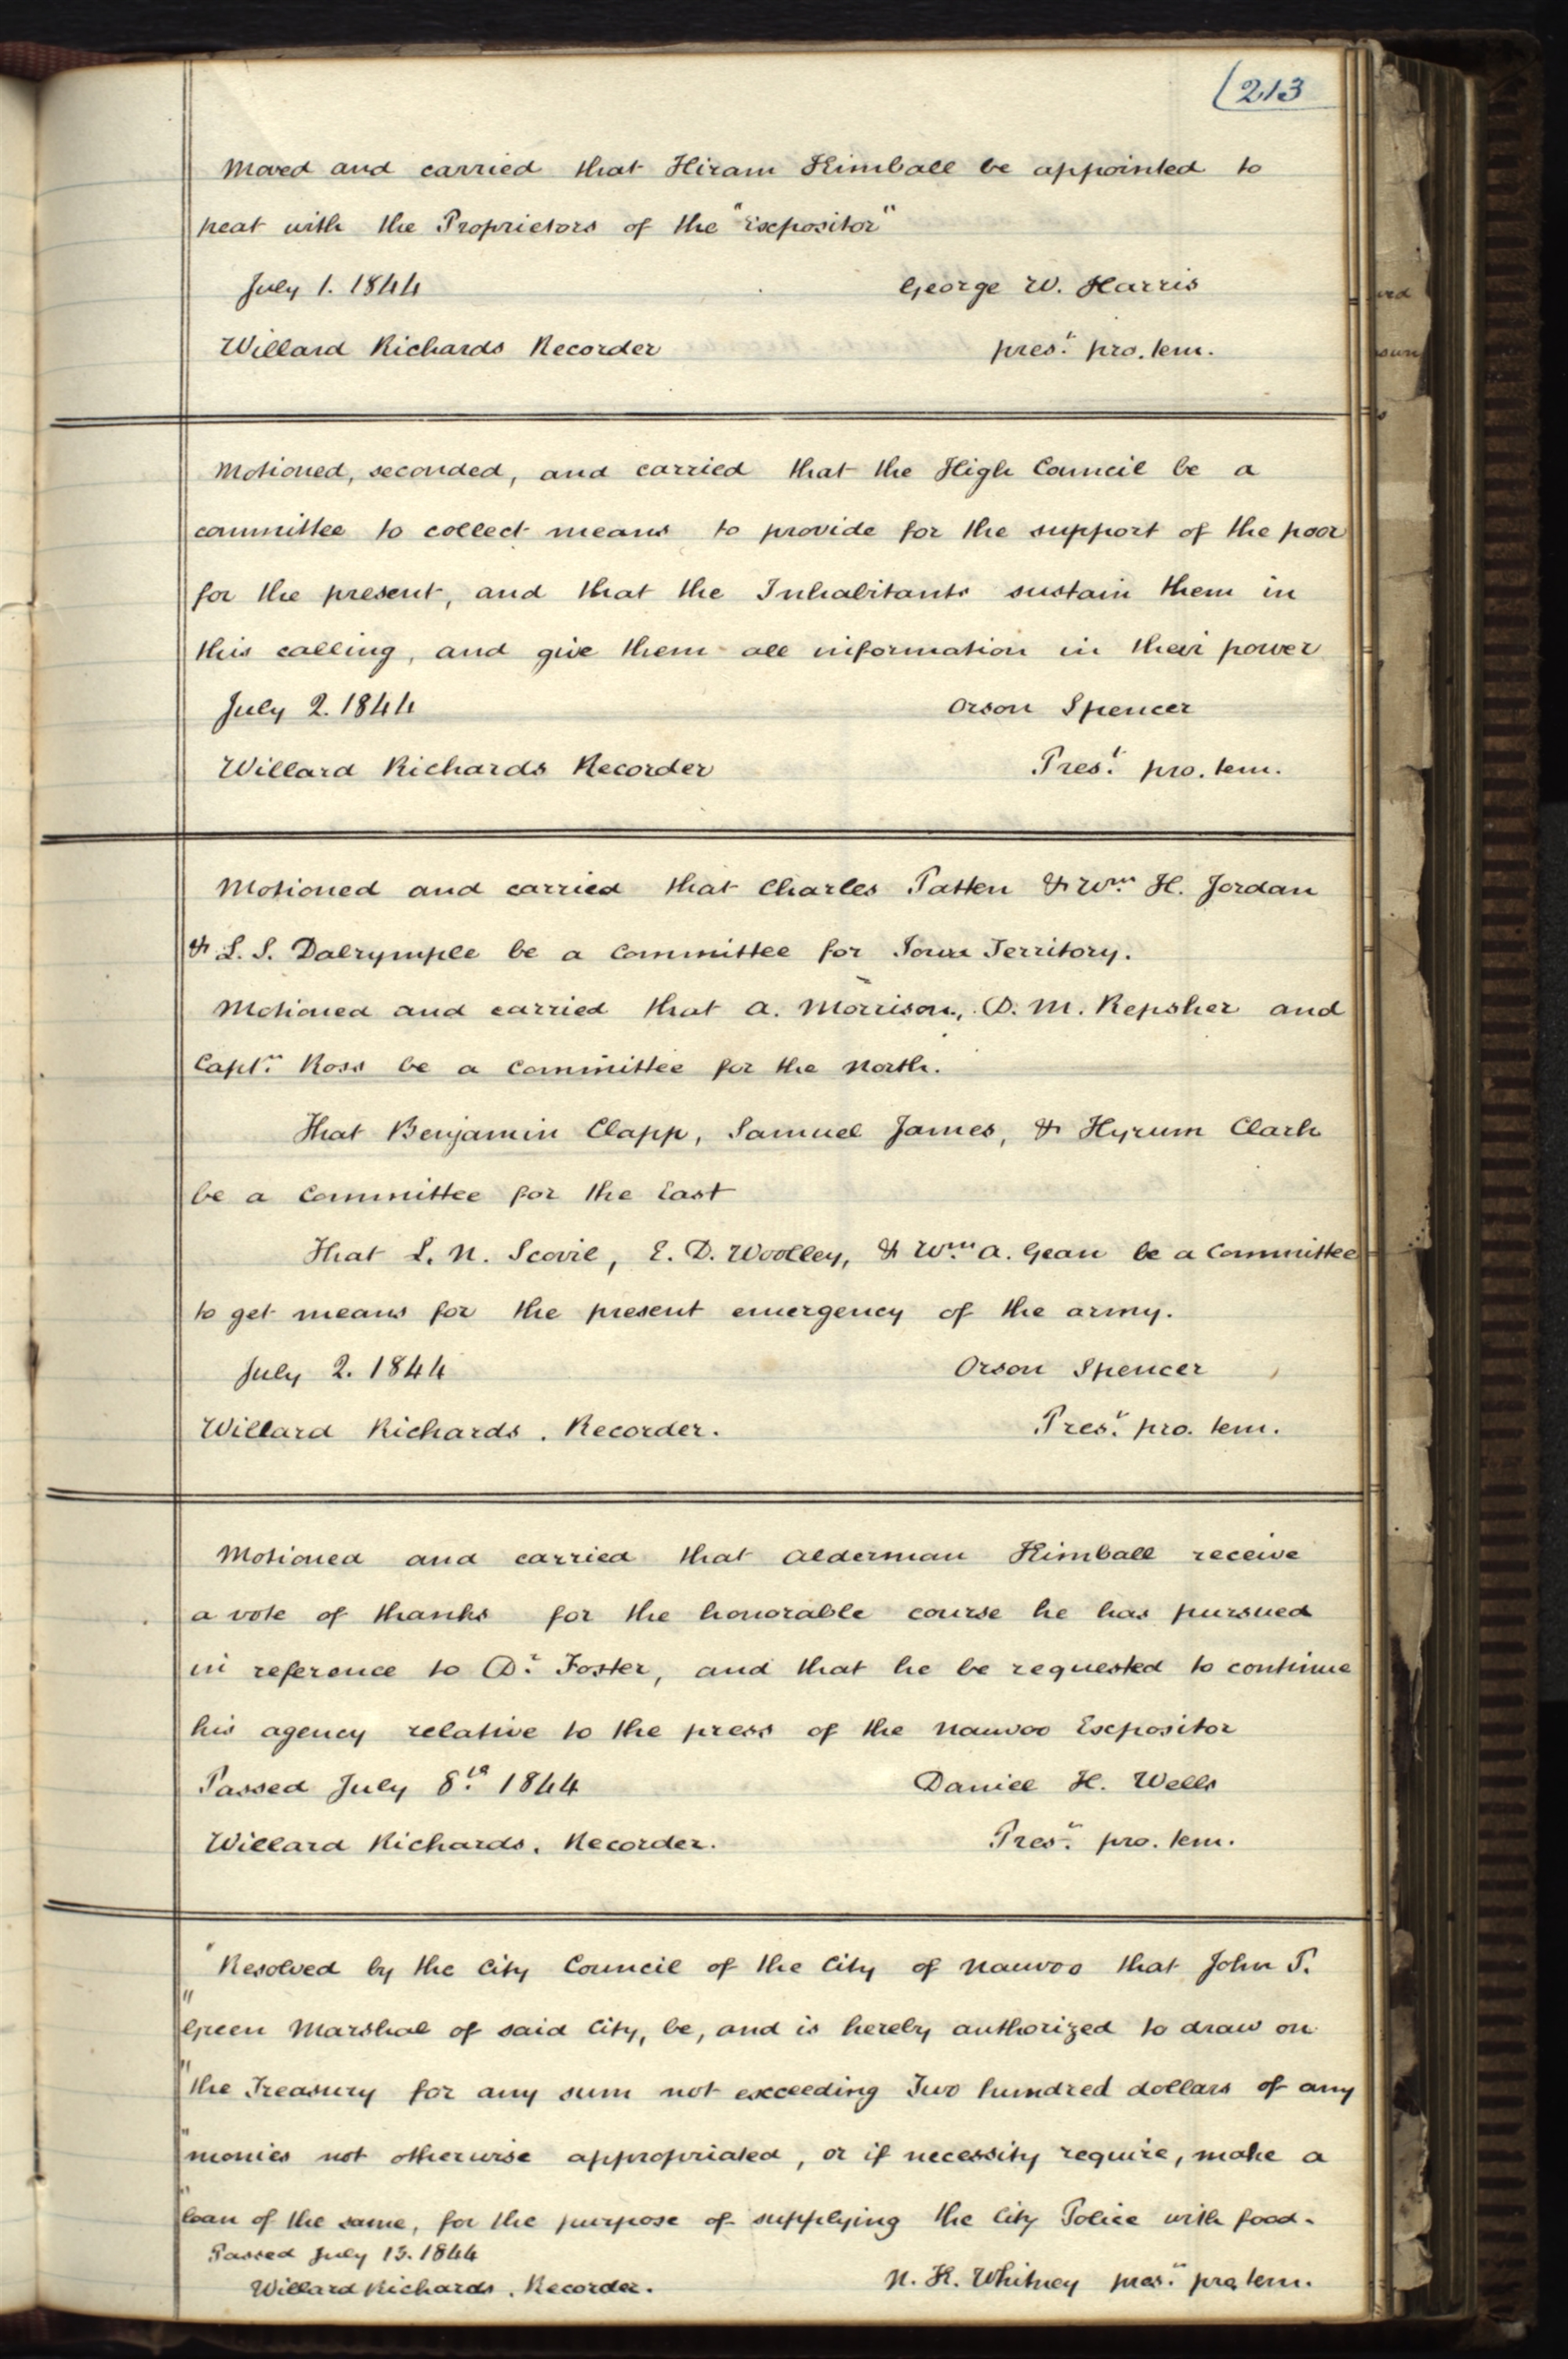 213
Moved and carried that Hiram Kimball be appointed to
treat with the Proprietors of the "Expositor"
July 1. 1844 George W. Harris
Willard Richards Recorder pres.t pro. tem.
Motioned, seconded, and carried that the High Council be a
committee to collect means to provide for the support of the poor
for the present, and that the Inhabitants sustain them in
this calling, and give them all information in their power
July 2. 1844 Orson Spencer
Willard Richards Recorder Pres.t pro. tem.
Motioned and carried that Charles Patten & Wm. H. Jordan
& L. S. Dalrymple be a Committee for Iowa Territory.
Motioned and carried that A. Morrison, D. M. Repsher and
Capt.n Ross be a Committee for the North.
That Benjamin Clapp, Samuel James, & Hyrum Clark
be a Committee for the East
That L. N. Scovil, E. D. Woolley, & Wm. A. Gean be a Committee
to get means for the present emergency of the army.
July 2. 1844 Orson Spencer
Willard Richards. Recorder. Pres.t pro. tem.
Motioned and carried that Alderman Kimball receive
a vote of thanks for the honorable course he has pursued
in reference to D.r Foster, and that he be requested to continue
his agency relative to the press of the Nauvoo Expositor
Passed July 8.th 1844 Daniel H. Wells
Willard Richards. Recorder. Pres.t pro. tem.
"Resolved by the City Council of the City of Nauvoo that John P.
"Green Marshal of said City, be, and is hereby authorized to draw on
"the Treasury for any sum not exceeding Two hundred dollars of any
"monies not otherwise appropriated, or if necessity require, make a
"loan of the same, for the purpose of supplying the City Police with food.
Passed July 13. 1844
Willard Richards. Recorder. N. K. Whitney pres.t pro tem.